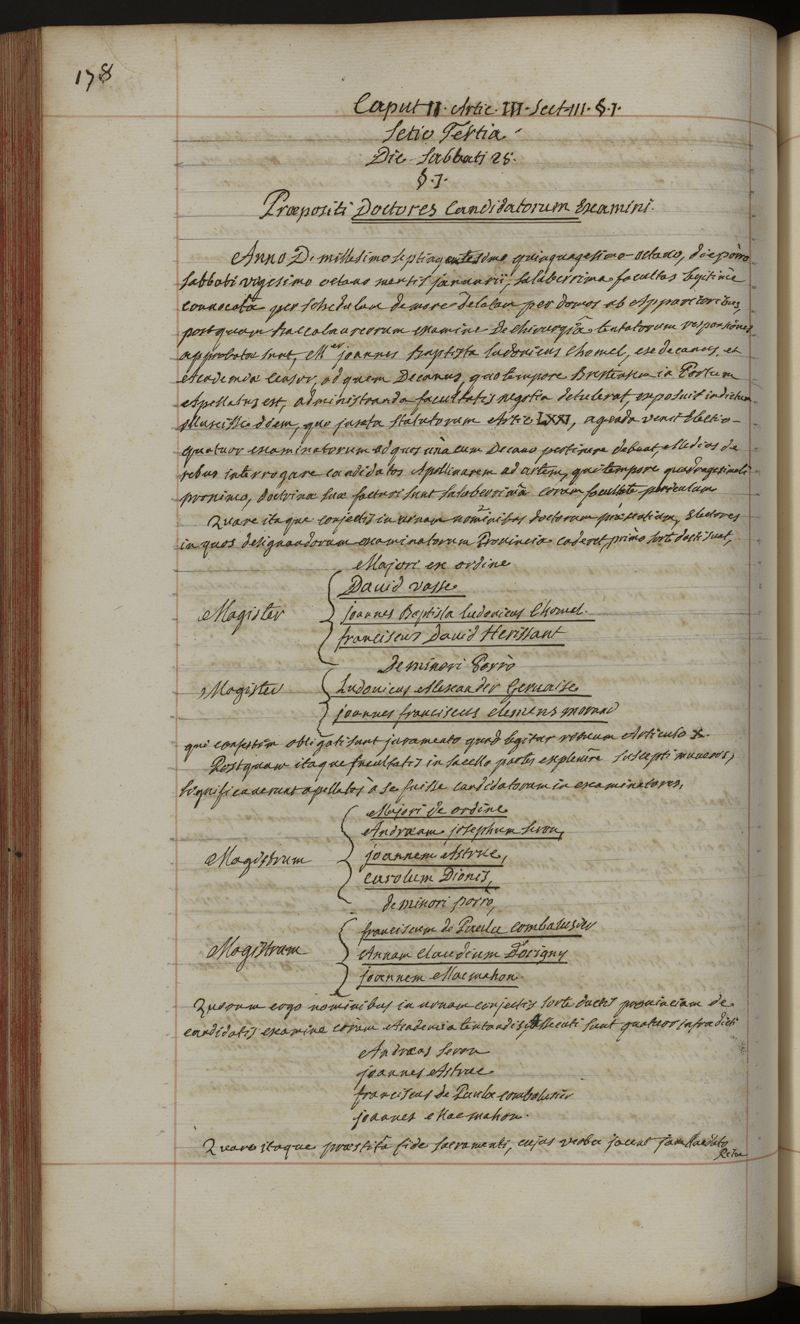 178
Caput II. Artic. III. Sect. III. §. I.
Setio Tertia
Die Sabbati 28.
§. I.
Præpositi Doctores Candidatorum Examini.
Anno D. millesimo septingentesimo quinquagesimo octavo, die porro
sabbati vigesimo octavo mensis januarii, saluberrima facultas legitime
convocata per schedulam de more delatam per domos ab Apparitoribus,
postquam Baccalaureorum examine de chirurgiâ tentatorum responsiones
approbatæ sunt, Mer joannes Baptista ludovicus Chomel, exdecanus, et
Academiæ Censor, ad quem Decanus, quo tempore in Portum
Apellatus est, administranda facultatis negotia detulerat, exposuit indictum
illuxisse diem, quo juxta statutorum Artic. LXXI, agenda venit Electio
quatuor examinatorum ad quos unà cum Decano pertinere debeat, Medicis de
rebus interrogare candidatos Apollinarem ad artem, qui tempore quadragesimali
proximo, doctrinæ suæ facturi sunt saluberrimâ coram facultate periculum
Quare itaque conjectis in urnam nominibus doctorum præsentium, Electores
in quos designandorum examinatorum Provincia caderet, primo sorte ducti sunt,
Majori ex ordine
Magister
David vasse
joannes Baptista ludovicus Chomel.
franciscus David Herissant
De minori Porrò
Magister
Ludovicus Alexander Gervaise
joannes franciscus clemens morand
qui confestim obligati sunt juramento quod legitur rituum Articulo X.
Postquam itaque facultatis in sacello partes explevere suscepti muneris,
significaverunt apellatos à se fuisse candidatorum in examinatores,
Majori de ordine
Magistrum
Andræam josephum Seron,
joannem Astruc,
carolum Dionis,
de minori porrò,
Magistrum
franciscum de Paula combalusier
Annam claudium D'origny
joannem Macmahon
Quorum ergo nominibus in urnam conjectis sorte ductis provinciam de
candidatis examine coram Academia tentandis Assecuti sunt quatuor infradicti
Andræas Seron
joannes Astruc
franciscus de Paula combalusier
joannes Macmahon.
Quare itaque præstitâ fide sacramenti, cujus verba jacent jam